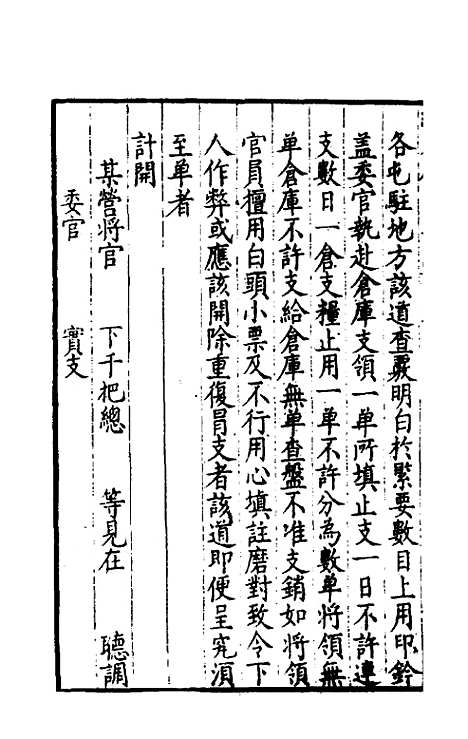 各屯駐地方該道查覈明白於緊要數目上用印鈐
盖委官執赴倉庫支領一單所填止支一日不許連
支數日一倉支糧止用一單不許分為數單將領無
单倉庫不許支給倉庫無单查盤不准支銷如將領
官員擅用白頭小票及不行用心填註磨對致令下
人作弊或應該開除重復冐支者該道即便呈究湏
至单者
計開
某營将官 下千把總 等見在 聽調
委官 實支